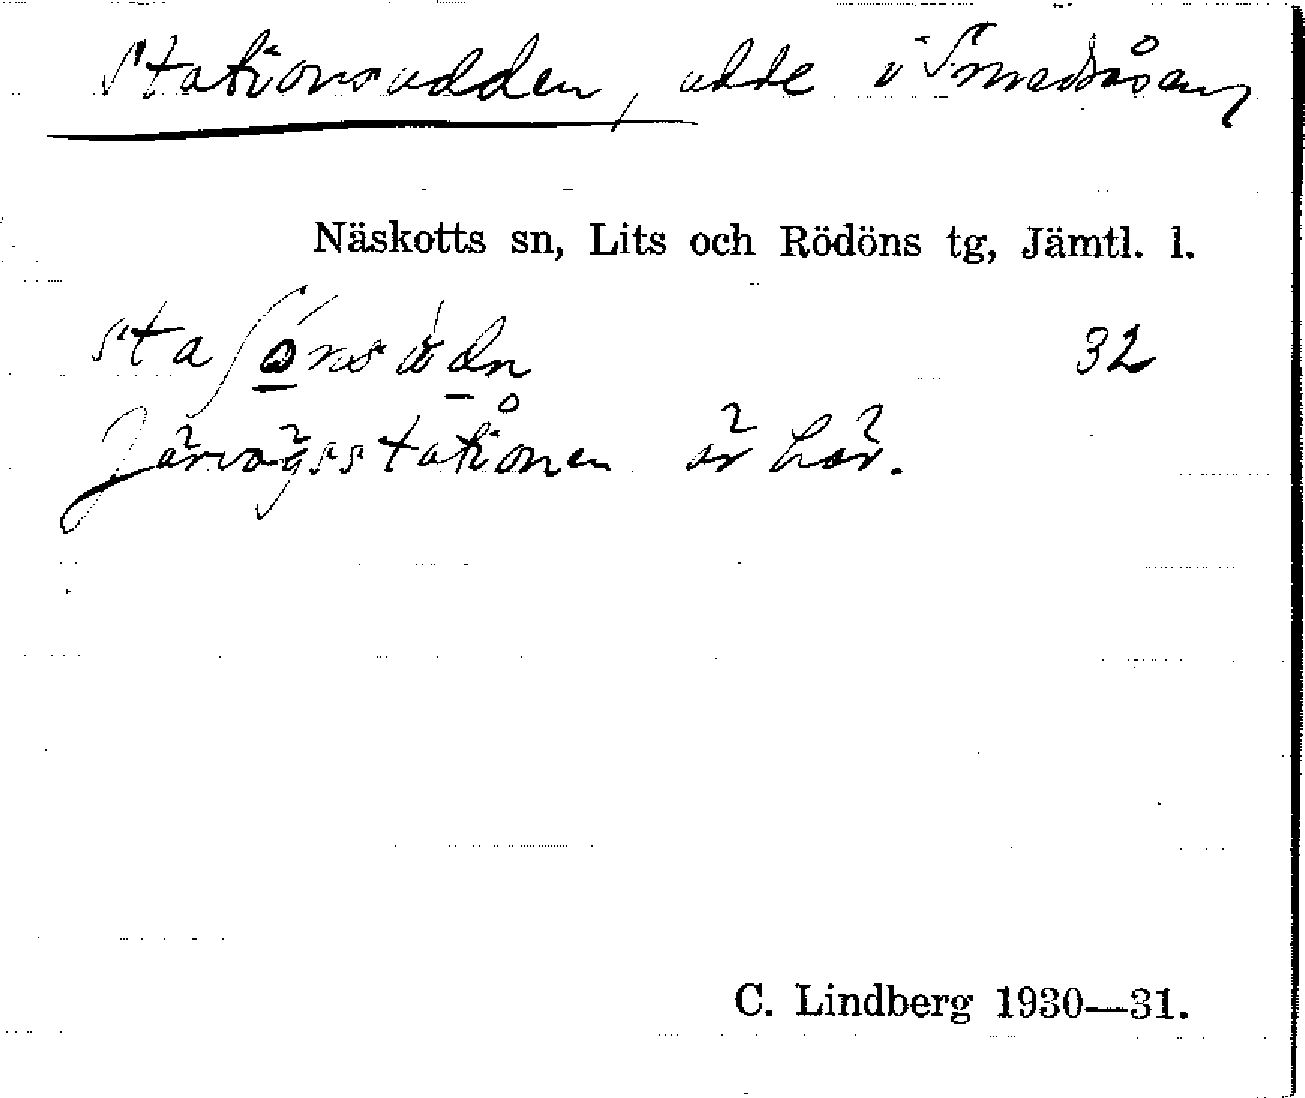 Stationsudden, udde i Smedsåsen,
Näskotts sn, Lits och Rödöns tg, Jämtl. l.
32
Järvägsstationen är här.
C. Lindberg 1930—31.